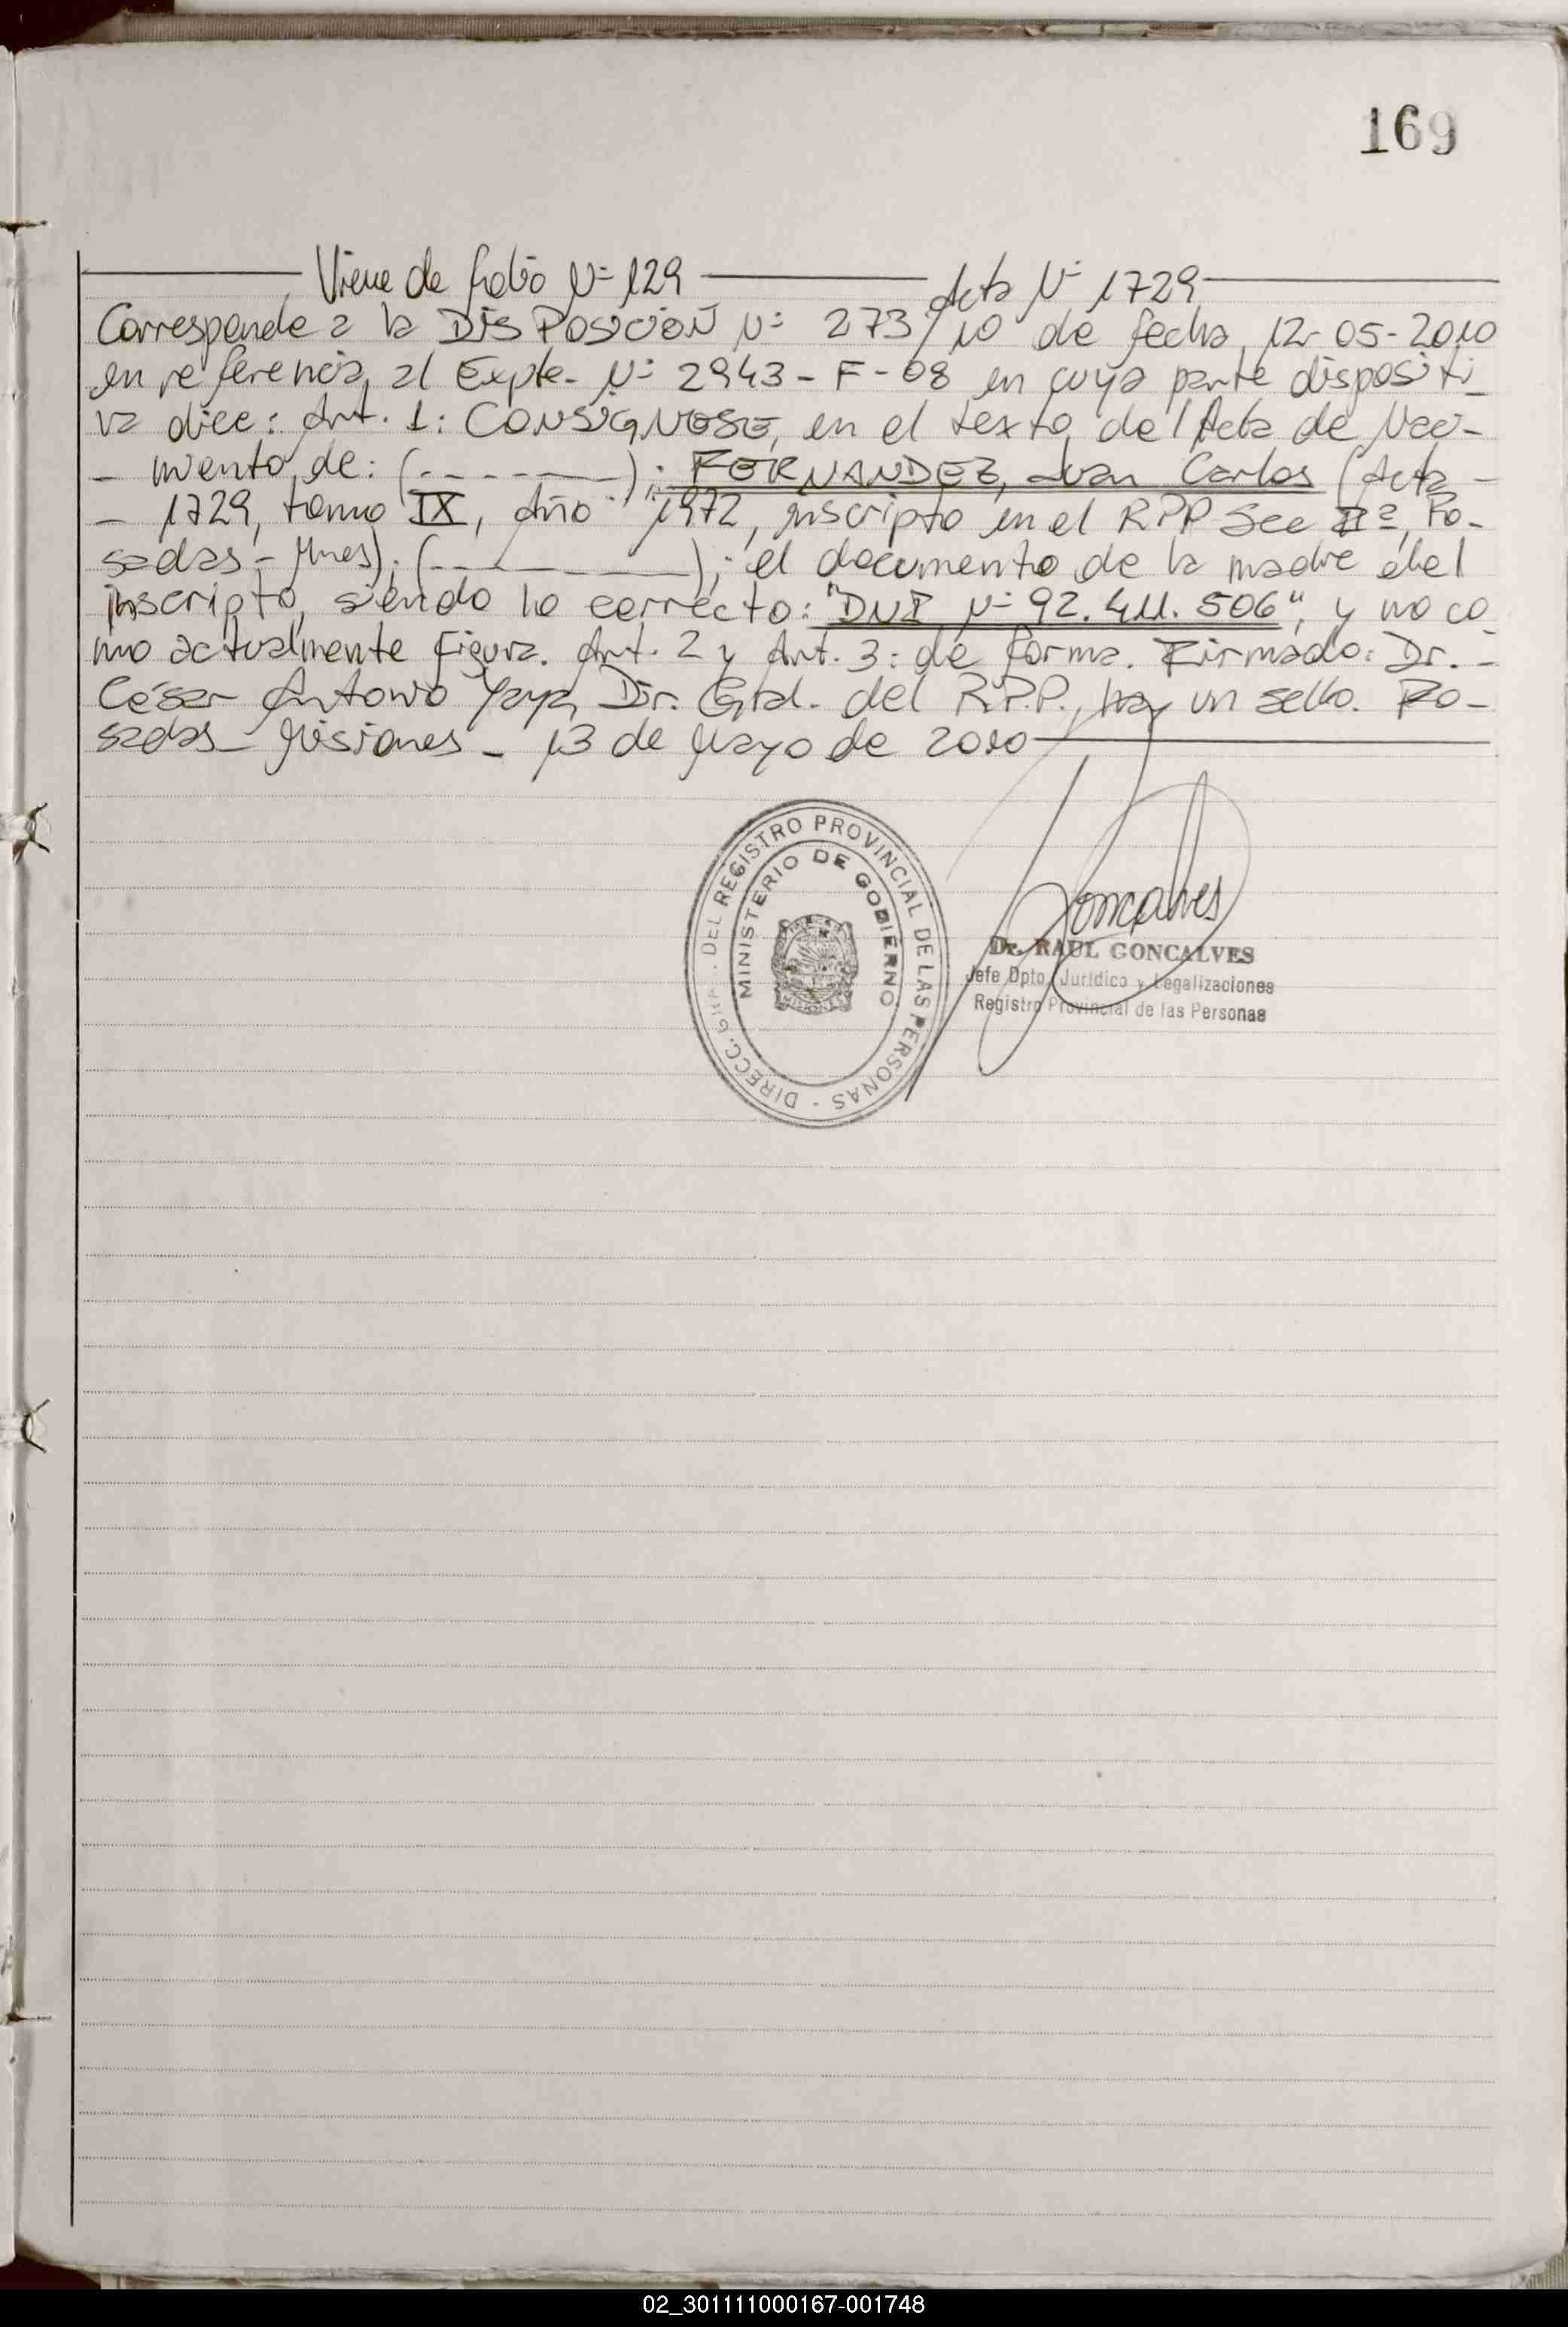 169
Viene de folio Nº 129 Acta Nº 1729
Corresponde a la DISPOSICIÓN Nº 273/10 de fecha, 12-05-2010
en referencia, al Expte- Nº 2943 - F - 08 en cuya parte dispositi_
va dice: Art. 1: CONSIGNESE, en el texto del Acta de Naci-
- miento, de: (- - - - - - -); FERNANDEZ, Juan Carlos (Acta -
- 1729, tomo IX, Año 1972, inscripto en el RPP Sec IIª, Po-
sadas - Mnes); (- - - - -); el documento de la madre del
inscripto, siendo lo correcto: "DNI Nº 92.411.506", y no co_
mo actualmente figura. Art. 2 y Art. 3: de forma. Firmado: Dr. -
César Antonio Yaya, Dir. Gral. del R.P.P., hay un sello. Po-
sadas - Misiones - 13 de Mayo de 2010
DIRECC. GRAL. DEL REGISTRO PROVINCIAL DE LAS PERSONAS -
MINISTERIO DE GOBIERNO
Goncalves
Dr. RAUL GONCALVES
Jefe Dpto. Jurídico y Legalizaciones
Registro Provincial de las Personas
02_301111000167-001748